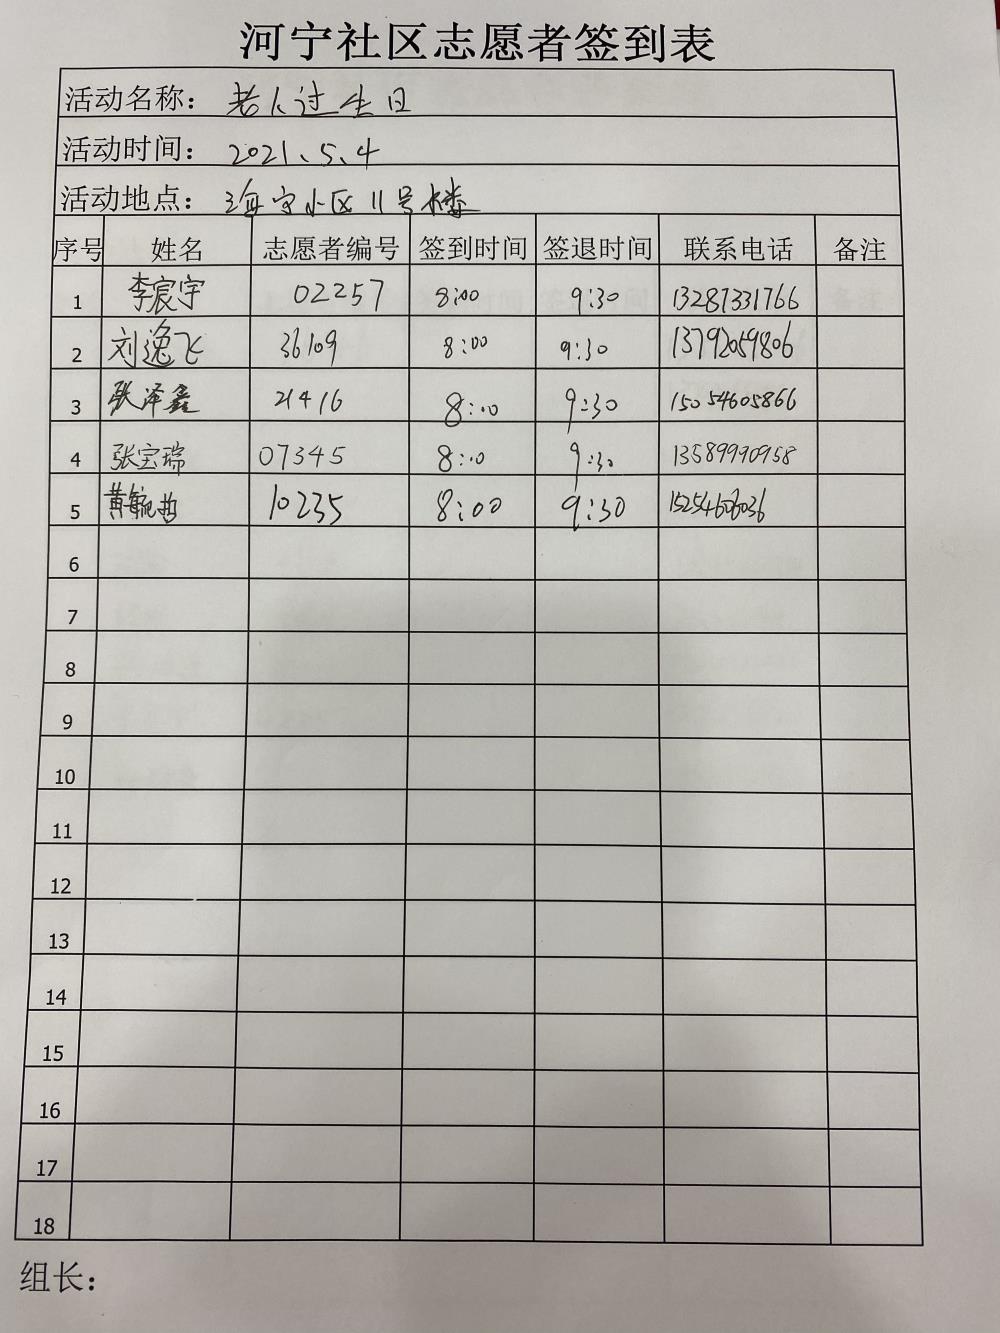 河宁社区志愿者签到表
活动名称：老人过生日
活动时间：2021、5、4
活动地点：海宁小区11号楼
序号 姓名 志愿者编号 签到时间 签退时间 联系电话 备注
1 李宸宇 02257 8:00 9:30 13287331766
2 刘逸飞 36109 8:00 9:30 13792059806
3 张泽鑫 21416 8:00 9:30 15054605866
4 张宝瑞 07345 8:00 9:30 13589990958
5 黄毓哲 10235 8:00 9:30
6
7
8
9
10
11
12
13
14
15
16
17
18
组长：